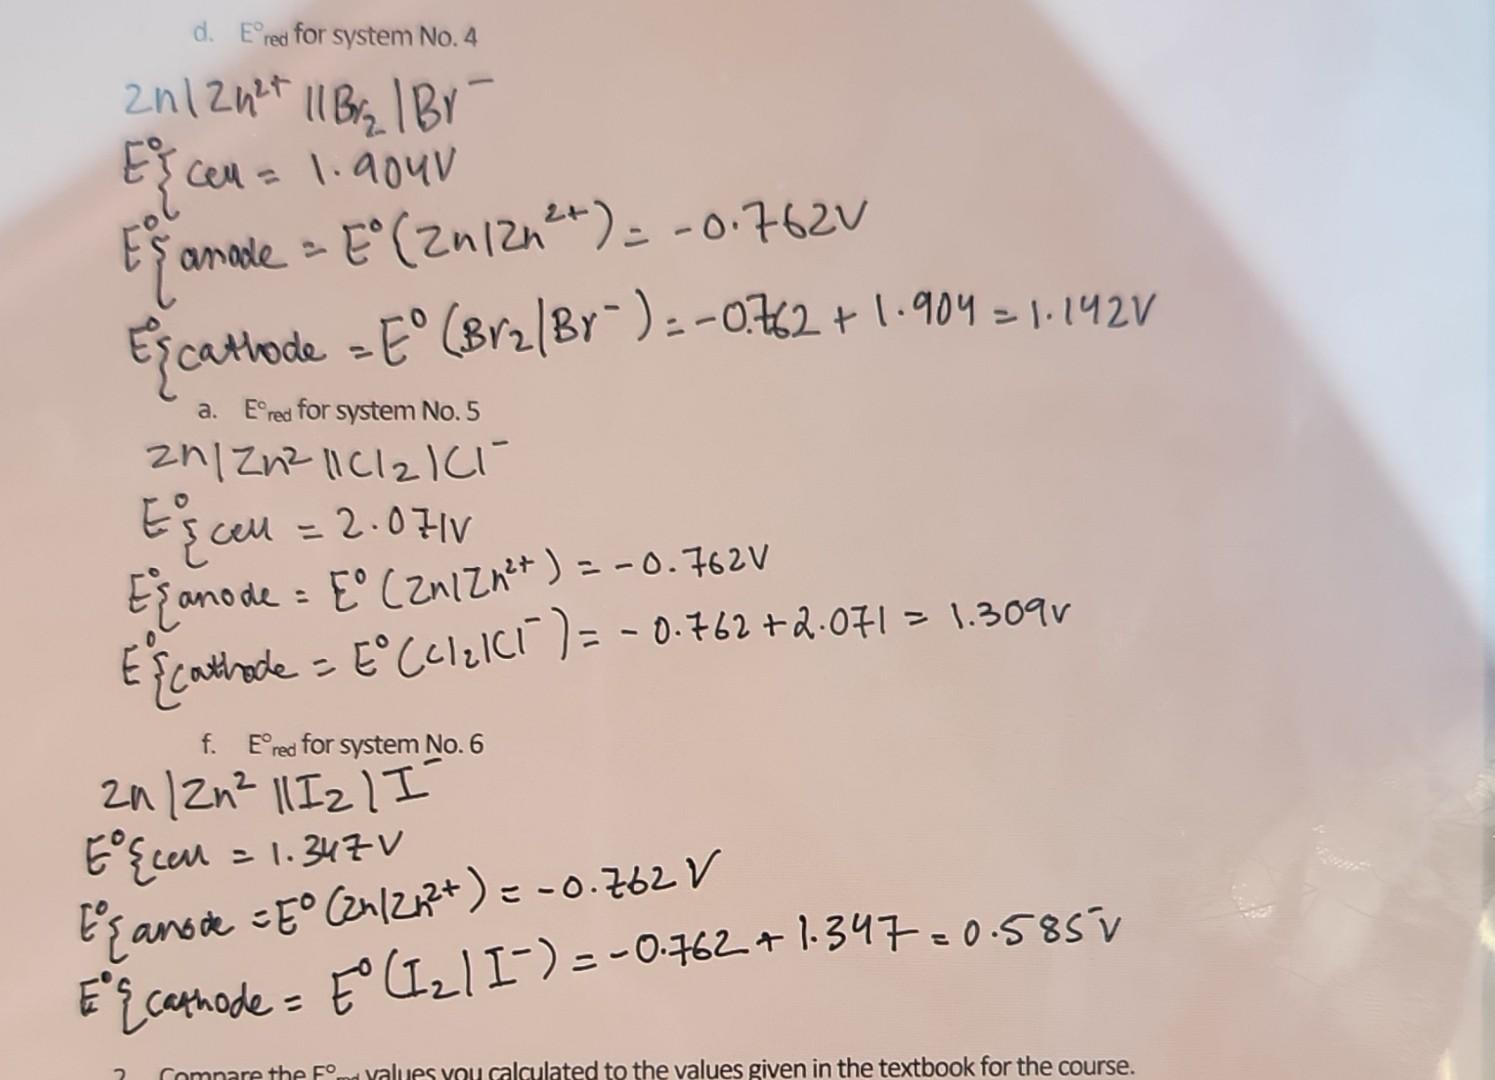 d. E°red for system No. 4
Zn|Zn²⁺ ||Br₂|Br⁻
E°{cell = 1.904V
E°{anode = E°(Zn|Zn²⁺) = -0.762V
E°{cathode = E°(Br₂|Br⁻) = -0.762 + 1.904 = 1.142V
a. E°red for system No. 5
Zn|Zn² ||Cl₂|Cl⁻
E°{cell = 2.071V
E°{anode = E°(Zn|Zn²⁺) = -0.762V
E°{cathode = E°(Cl₂|Cl⁻) = -0.762+2.071 = 1.309V
f. E°red for system No. 6
Zn|Zn² ||I₂|I⁻
E°{cell = 1.347V
E°{anode = E°(Zn|Zn²⁺) = -0.762 V
E°{cathode = E°(I₂|I⁻) = -0.762 + 1.347 = 0.585V
2. Compare the E°red values you calculated to the values given in the textbook for the course.